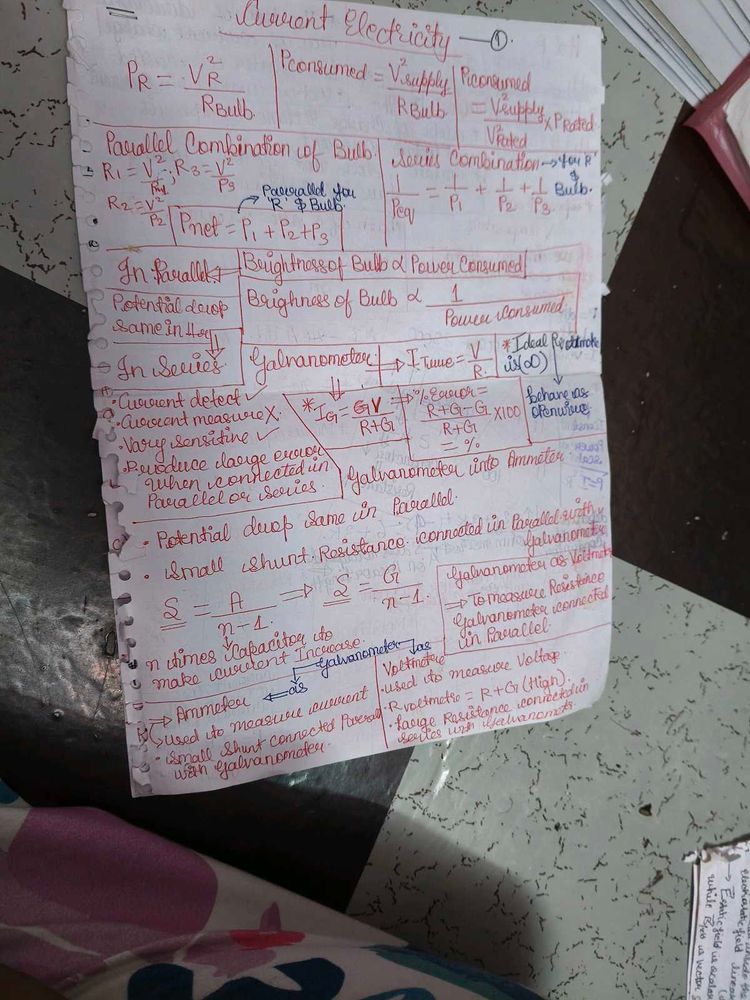 Current Electricity — ①.
P_R = V²_R / R_Bulb
Pconsumed = V²supply / R_Bulb
Pconsumed = V²supply / V²Rated × PRated
Parallel Combination of Bulb.
R1 = V²/P1, R3 = V²/P3
R2 = V²/P2
Parallel for 'R' & Bulb.
Pnet = P1 + P2 + P3
Series Combination → for R & Bulb.
1/Peq = 1/P1 + 1/P2 + 1/P3
In Parallel → Brightness of Bulb ∝ Power Consumed
Potential drop same in
In Series
Brighness of Bulb ∝ 1 / Power Consumed
Galvanometer → I.True = V/R
* Ideal is (∞)
behave as
• Current detect ✓
• Current measure X.
• Vary sensitive ✓
Produce large error
when connected in
Parallel or series.
* I_G = V / R+G
⇒ % Error = R+G-G / R+G × 100
= %
Galvanometer into Ammeter
• Potential drop same in Parallel.
• Small shunt Resistance connected in Parallel with
Galvanometer
S = A / n-1 ⇒ S = G / n-1.
n times Capacitor to
make current Increase.
Galvanometer as Voltmeter
⇒ To measure Resistance
Galvanometer connected
in Parallel.
Galvanometer as
→ Ammeter ⇐ as
used to measure current
• small shunt connected Parallel
with Galvanometer.
Voltmeter
• used to measure Voltage.
• Rvoltmetre = R+G (High).
• large Resistance connected in
series with Galvanometer.